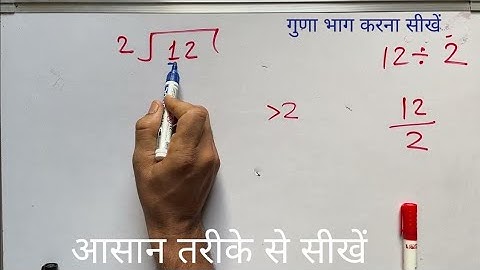 गुणा भाग करना सीखें
2 √12
12 ÷ 2
>2
12
2
आसान तरीके से सीखें